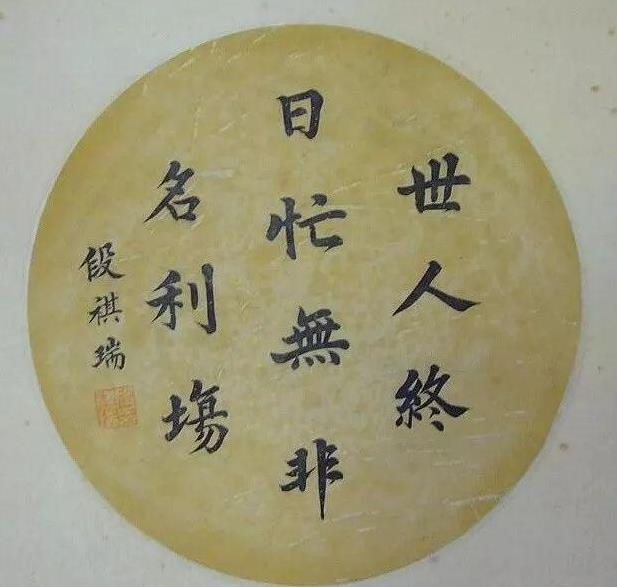 世人終
日忙無非
名利塲
段祺瑞